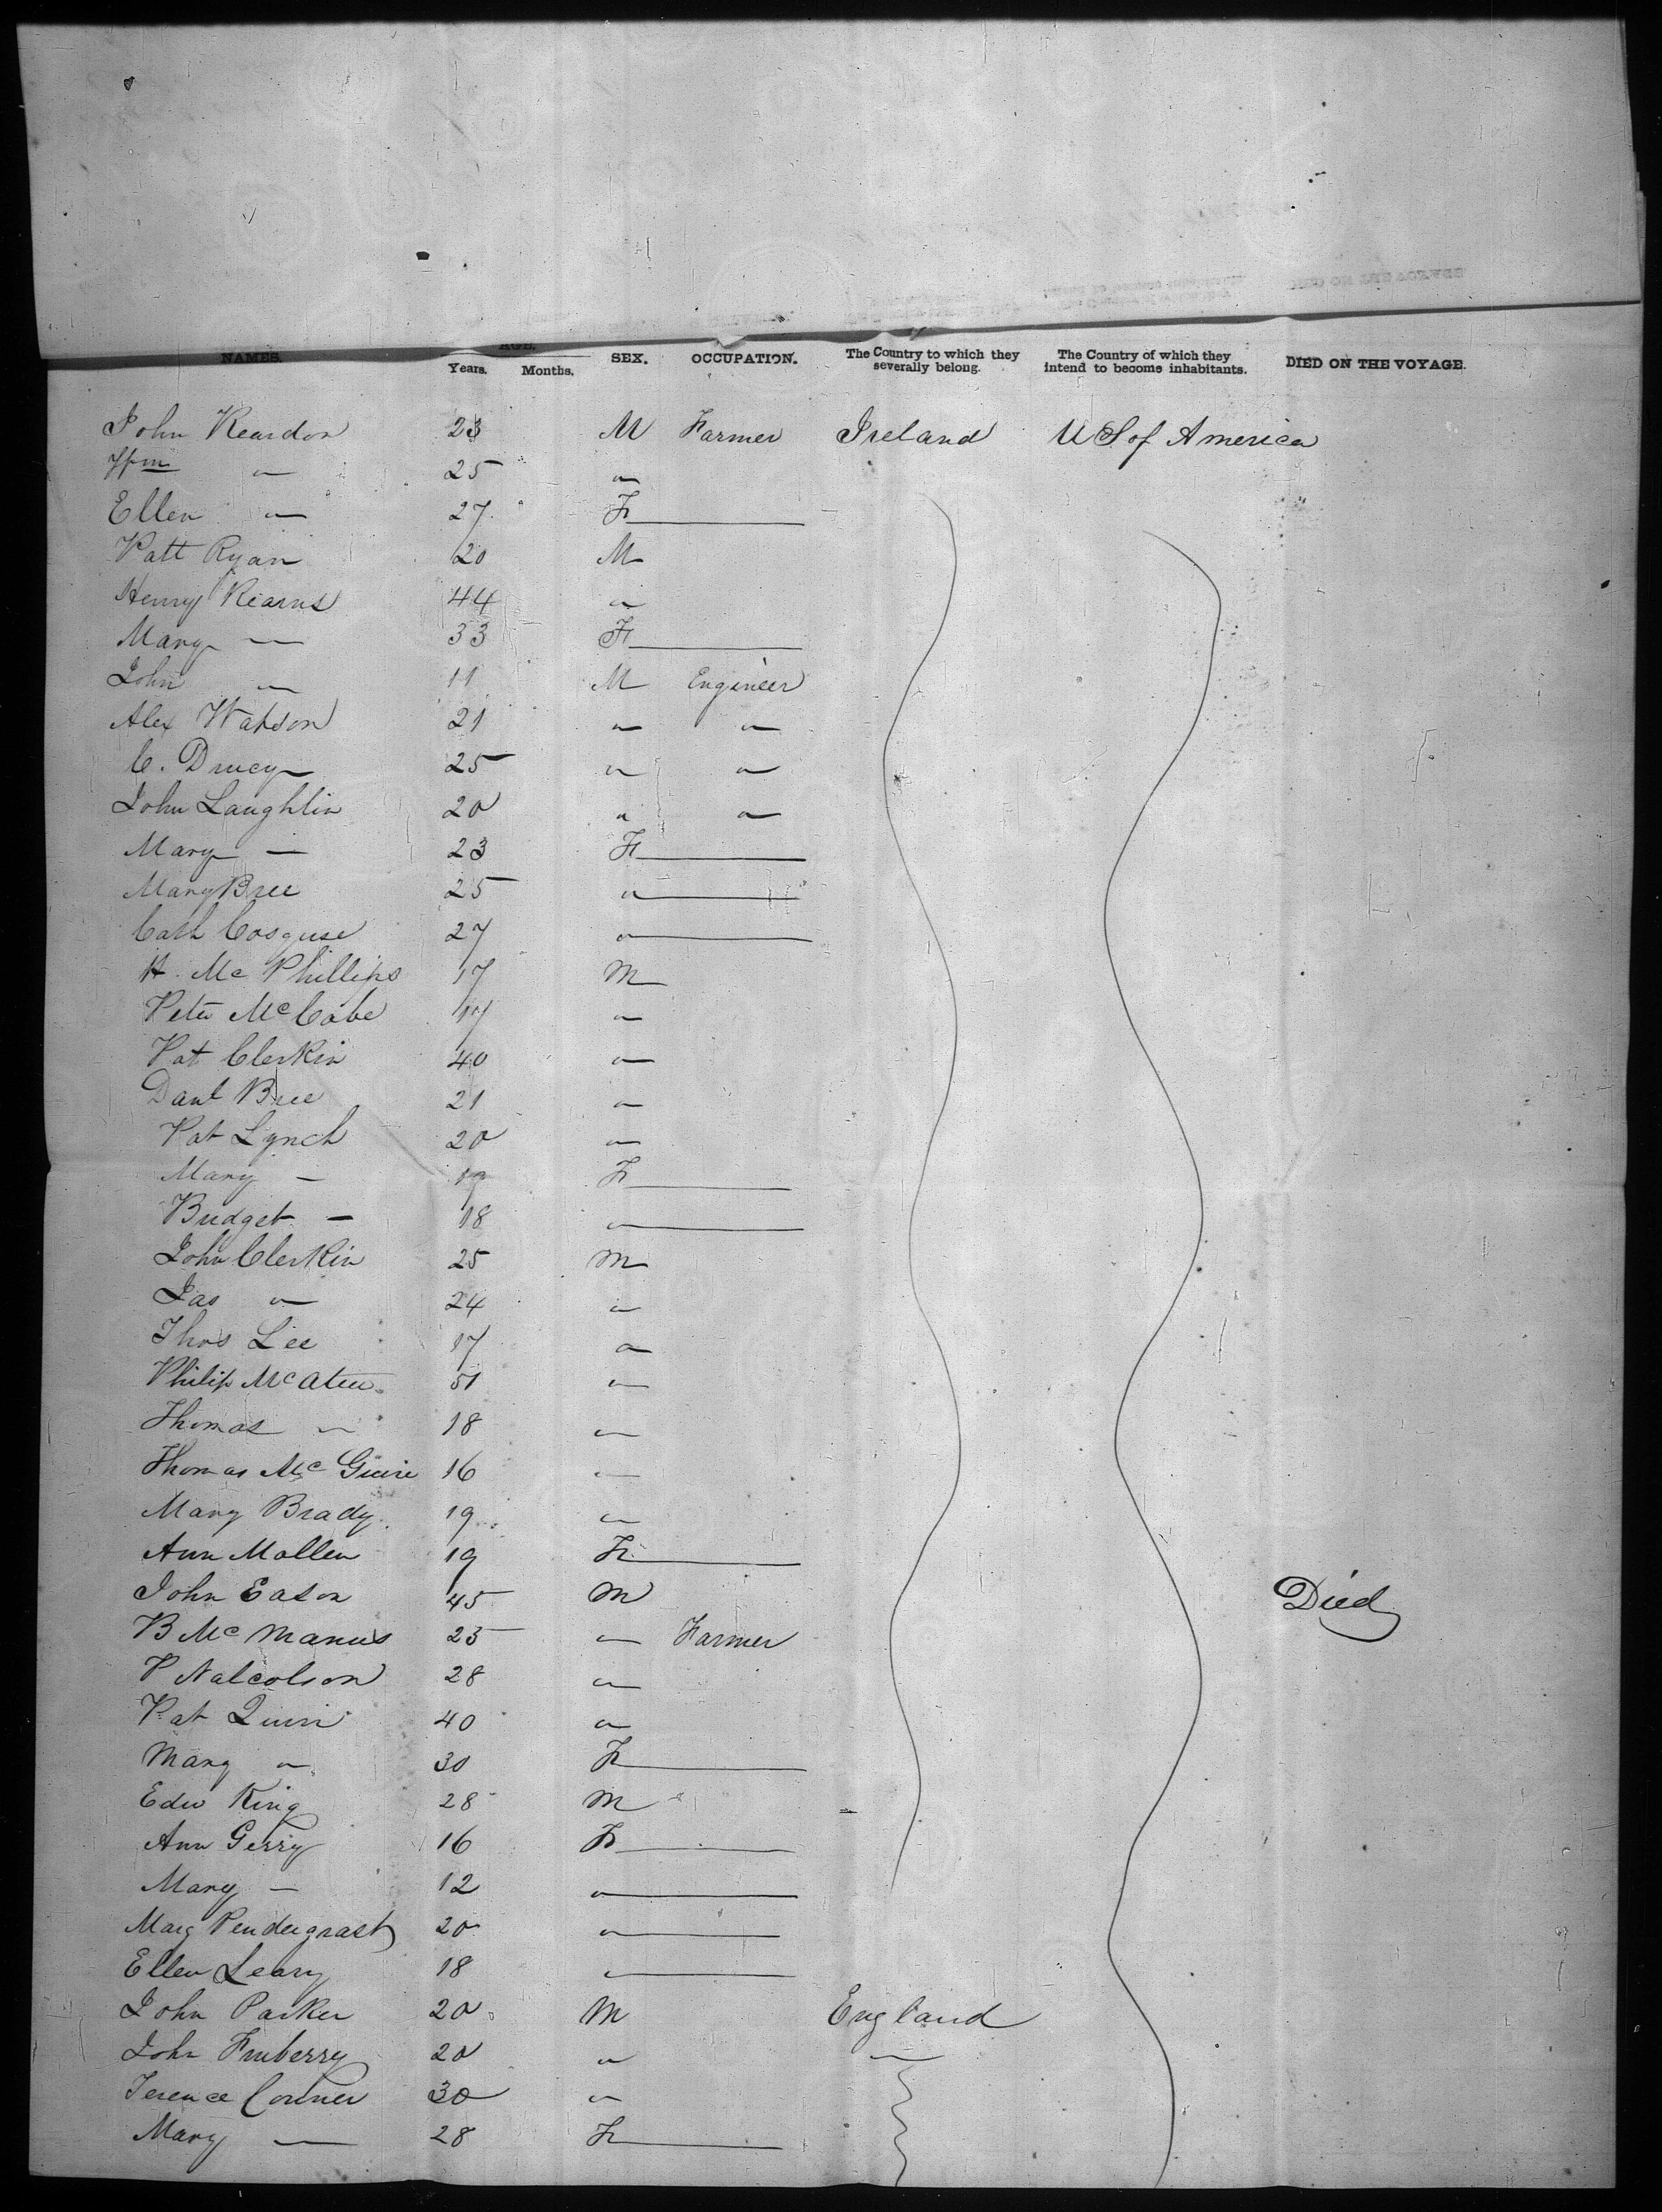 NAMES. AGE. Years. Months. SEX. OCCUPATION. The Country to which they severally belong. The Country of which they intend to become inhabitants. DIED ON THE VOYAGE.
John Reardon 23 M Farmer Ireland US of America
Wm " 25 "
Ellen " 27 F
Patt Ryan 20 M
Henry Kearns 44 "
Mary — 33 F
John " 11 M Engineer
Alex Watson 21 " "
C. Drucy 25 " "
John Laughlin 20 " "
Mary — 23 F
Mary Bree 25 "
Cath Cosguse 27 "
H. Mc Phillips 17 M
Peter McCabe 17 "
Pat Clerkin 40 "
Danl Bree 21 "
Pat Lynch 20 "
Mary — 19 F
Bridget — 18 "
John Clerkin 25 M
Jas " 24 "
Thos Lee 17 "
Philip McAteer 51 "
Thomas " 18 "
Thomas McGuire 16 "
Mary Brady 19 "
Ann Mollen 19 F
John Eason 45 M Died
B McManus 25 " Farmer
P Nalcolson 28 "
Pat Quin 40 "
Mary " 30 F
Edw King 28 M
Ann Gerry 16 F
Mary — 12 "
Marg Pendergrast 20 "
Ellen Leary 18 "
John Parker 20 M England
John Finberry 20 " "
Terence Conner 30 "
Mary — 28 F